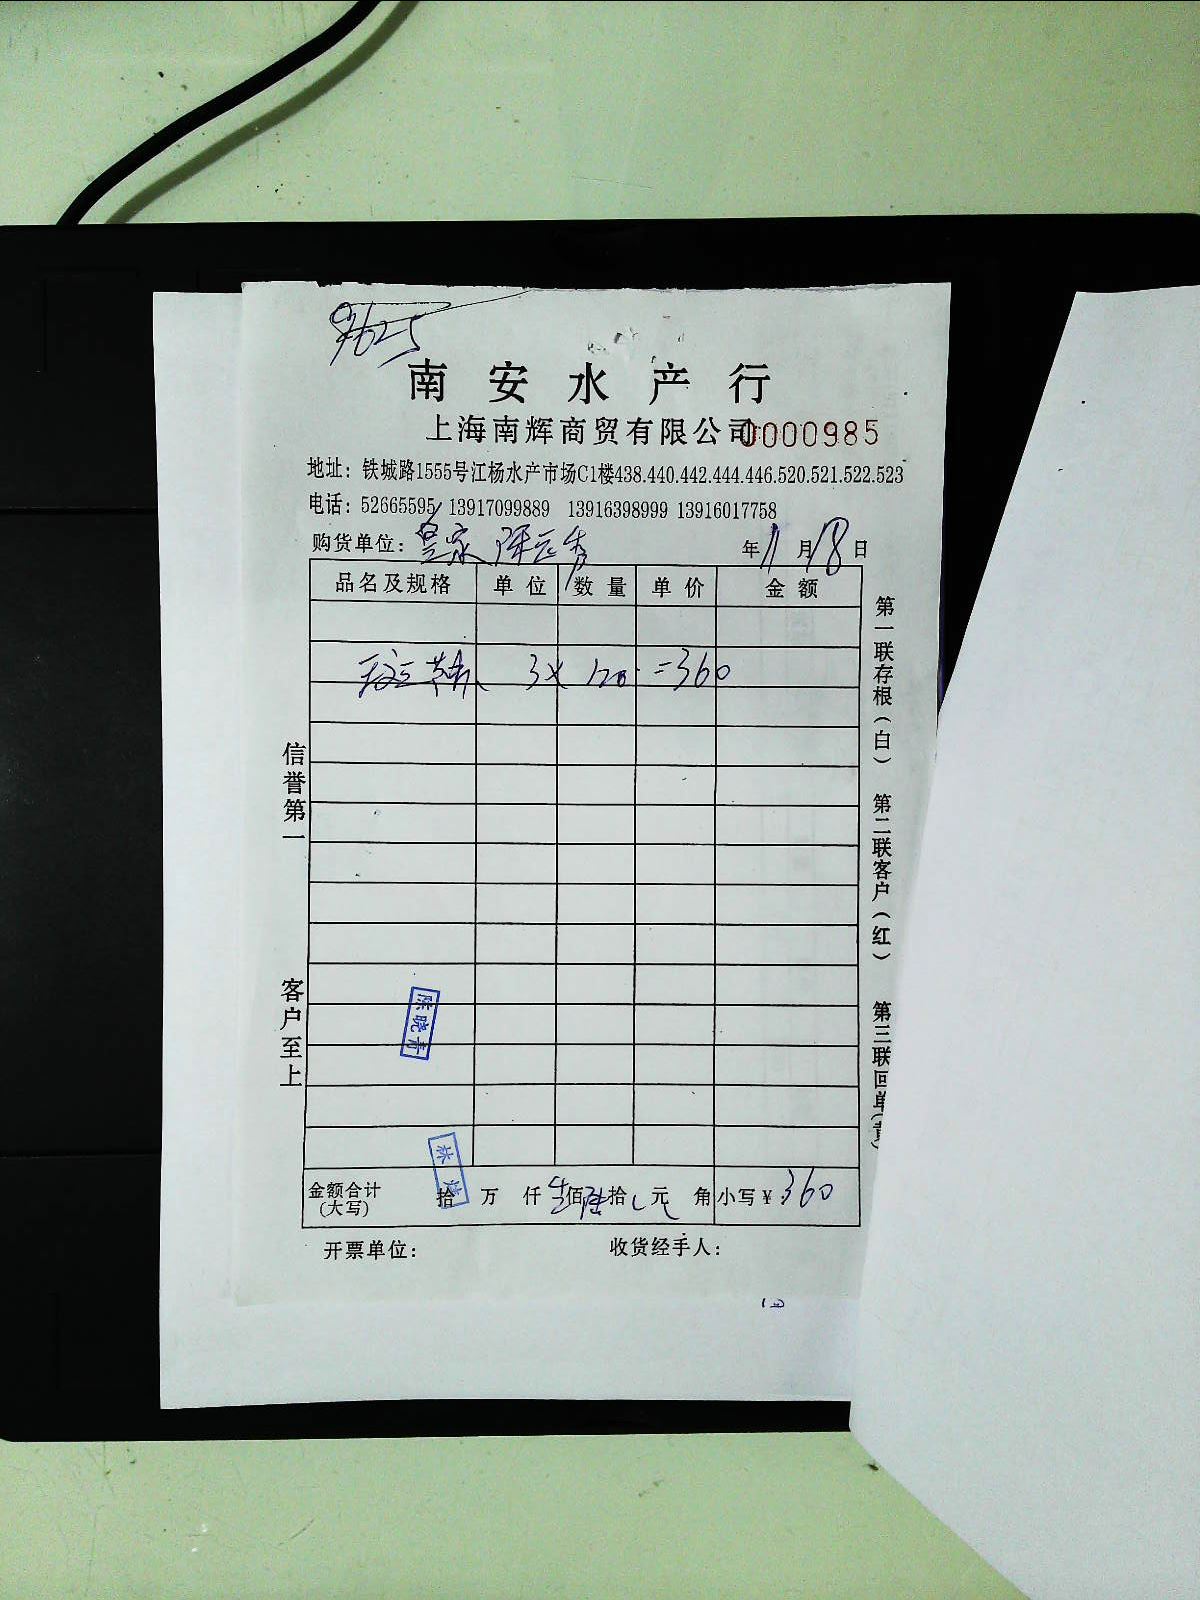 9625
南安水产行
上海南辉商贸有限公司 0000985
地址：铁城路1555号江杨水产市场C1楼438.440.442.444.446.520.521.522.523
电话：52665595 13917099889 13916398999 13916017758
购货单位：皇家 年 11 月 18 日
品名及规格 单位 数量 单价 金额
3× 120 =360
信誉第一
客户至上
第一联存根（白） 第二联客户（红） 第三联回单（黄）
陈晓青
林
金额合计 拾 万 仟 叁佰 陆拾 元 角 小写￥360
(大写)
开票单位： 收货经手人：